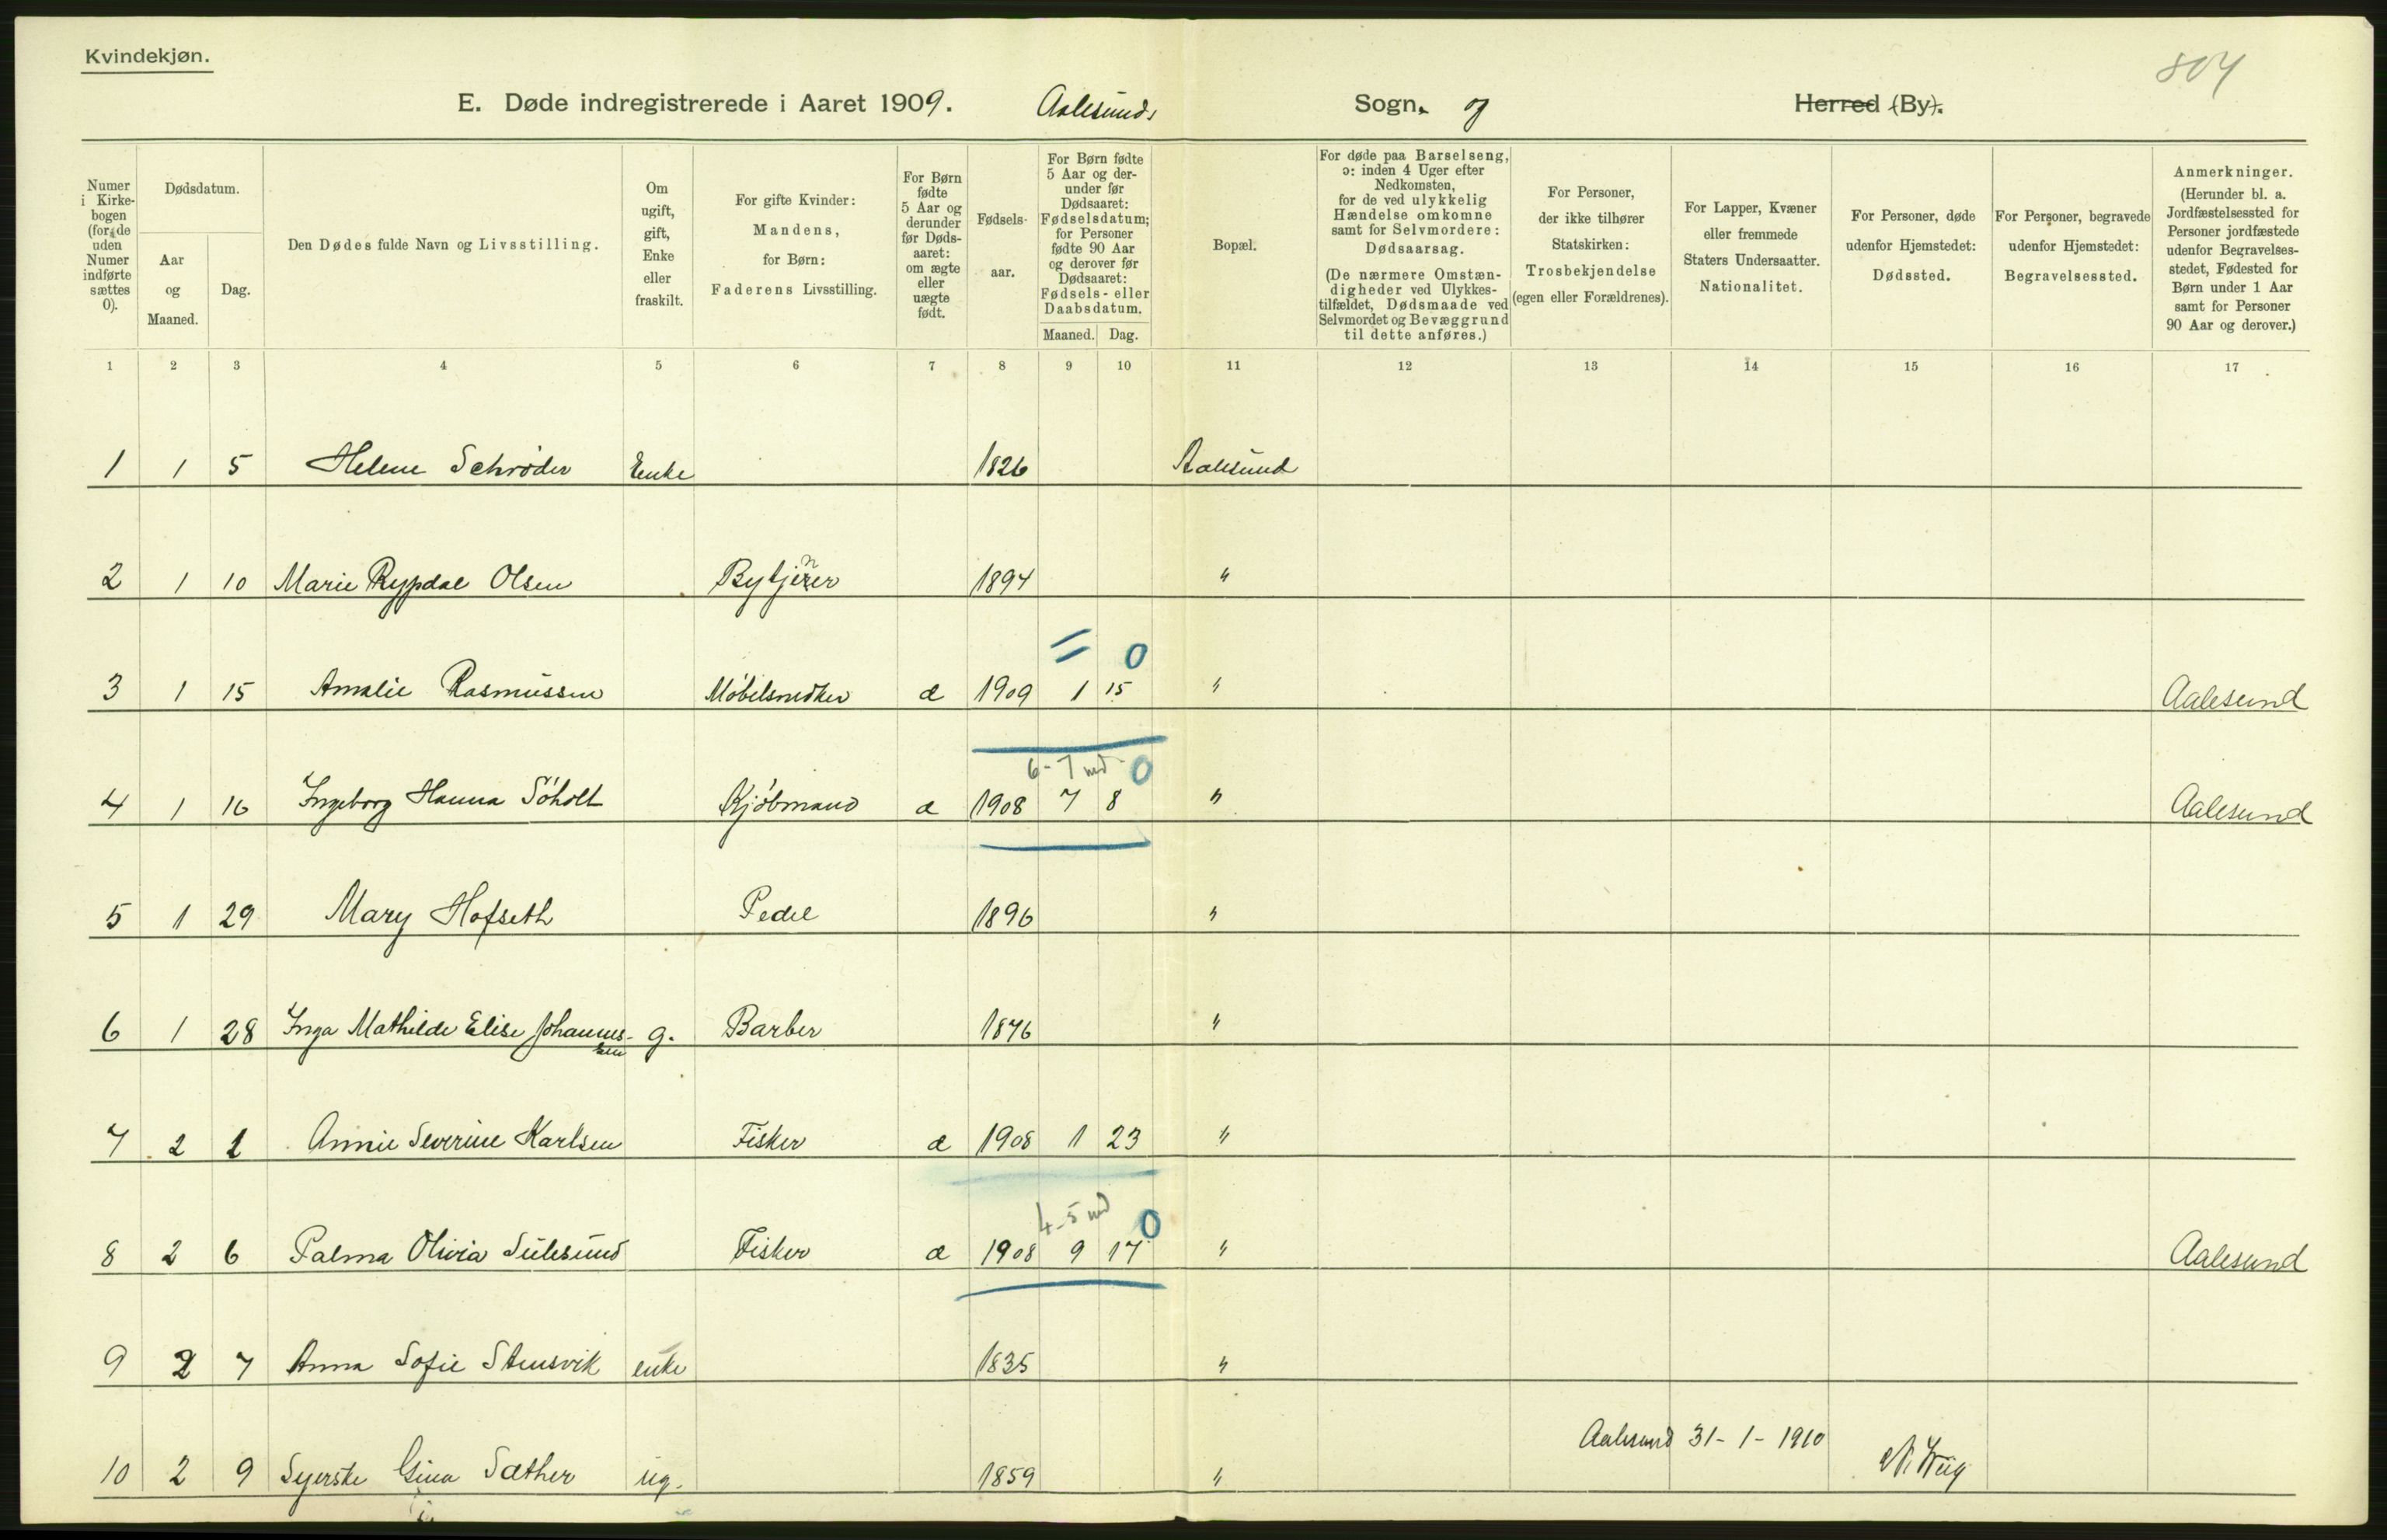 Kvindekjøn.
804
E. Døde indregistrerede i Aaret 1909. Aalesunds Sogn. og Herred (By).
Numer i Kirkebogen (for de uden Numer indførte sættes 0).
Dødsdatum.
Aar og Maaned.
Dag.
Den Dødes fulde Navn og Livsstilling.
Om ugift, gift, Enke eller fraskilt.
For gifte Kvinder: Mandens, for Børn: Faderens Livsstilling.
For Børn fødte 5 Aar og derunder før Dødsaaret: om ægte eller uægte født.
Fødselsaar.
For Børn fødte 5 Aar og derunder før Dødsaaret: Fødselsdatum; for Personer fødte 90 Aar og derover før Dødsaaret: Fødsels- eller Daabsdatum.
Maaned. Dag.
Bopæl.
For døde paa Barselseng, ɔ: inden 4 Uger efter Nedkomsten, for de ved ulykkelig Hændelse omkomne samt for Selvmordere: Dødsaarsag.
(De nærmere Omstændigheder ved Ulykkestilfældet, Dødsmaade ved Selvmordet og Bevæggrund til dette anføres.)
For Personer, der ikke tilhører Statskirken: Trosbekjendelse (egen eller Forældrenes).
For Lapper, Kvæner eller fremmede Staters Undersaatter. Nationalitet.
For Personer, døde udenfor Hjemstedet: Dødssted.
For Personer, begravede udenfor Hjemstedet: Begravelsessted.
Anmerkninger. (Herunder bl. a. Jordfæstelsessted for Personer jordfæstede udenfor Begravelsesstedet, Fødested for Børn under 1 Aar samt for Personer 90 Aar og derover.)
1 2 3 4 5 6 7 8 9 10 11 12 13 14 15 16 17
1 1 5 Helene Schrøder Enke 1826 Aalesund
2 1 10 Marie Rypdal Olsen Bytjener 1894 "
= 0
3 1 15 Amalie Rasmussen Møbelsnedker æ 1909 1 15 " Aalesund
6-7 md 0
4 1 16 Ingeborg Hanna Søholt Kjøbmand æ 1908 7 8 " Aalesund
5 1 29 Mary Hofseth Pedel 1896 "
6 1 28 Inga Mathilde Elise Johannessen g. Barber 1876 "
7 2 1 Annie Severine Karlsen Fisker æ 1908 1 23 "
4-5 md 0
8 2 6 Palma Olivia Sulesund Fisker æ 1908 9 17 " Aalesund
9 2 7 Anna Sofie Stensvik enke 1835 "
10 2 9 Syerske Gina Sæther ug. 1859 "
Aalesund 31-1-1910